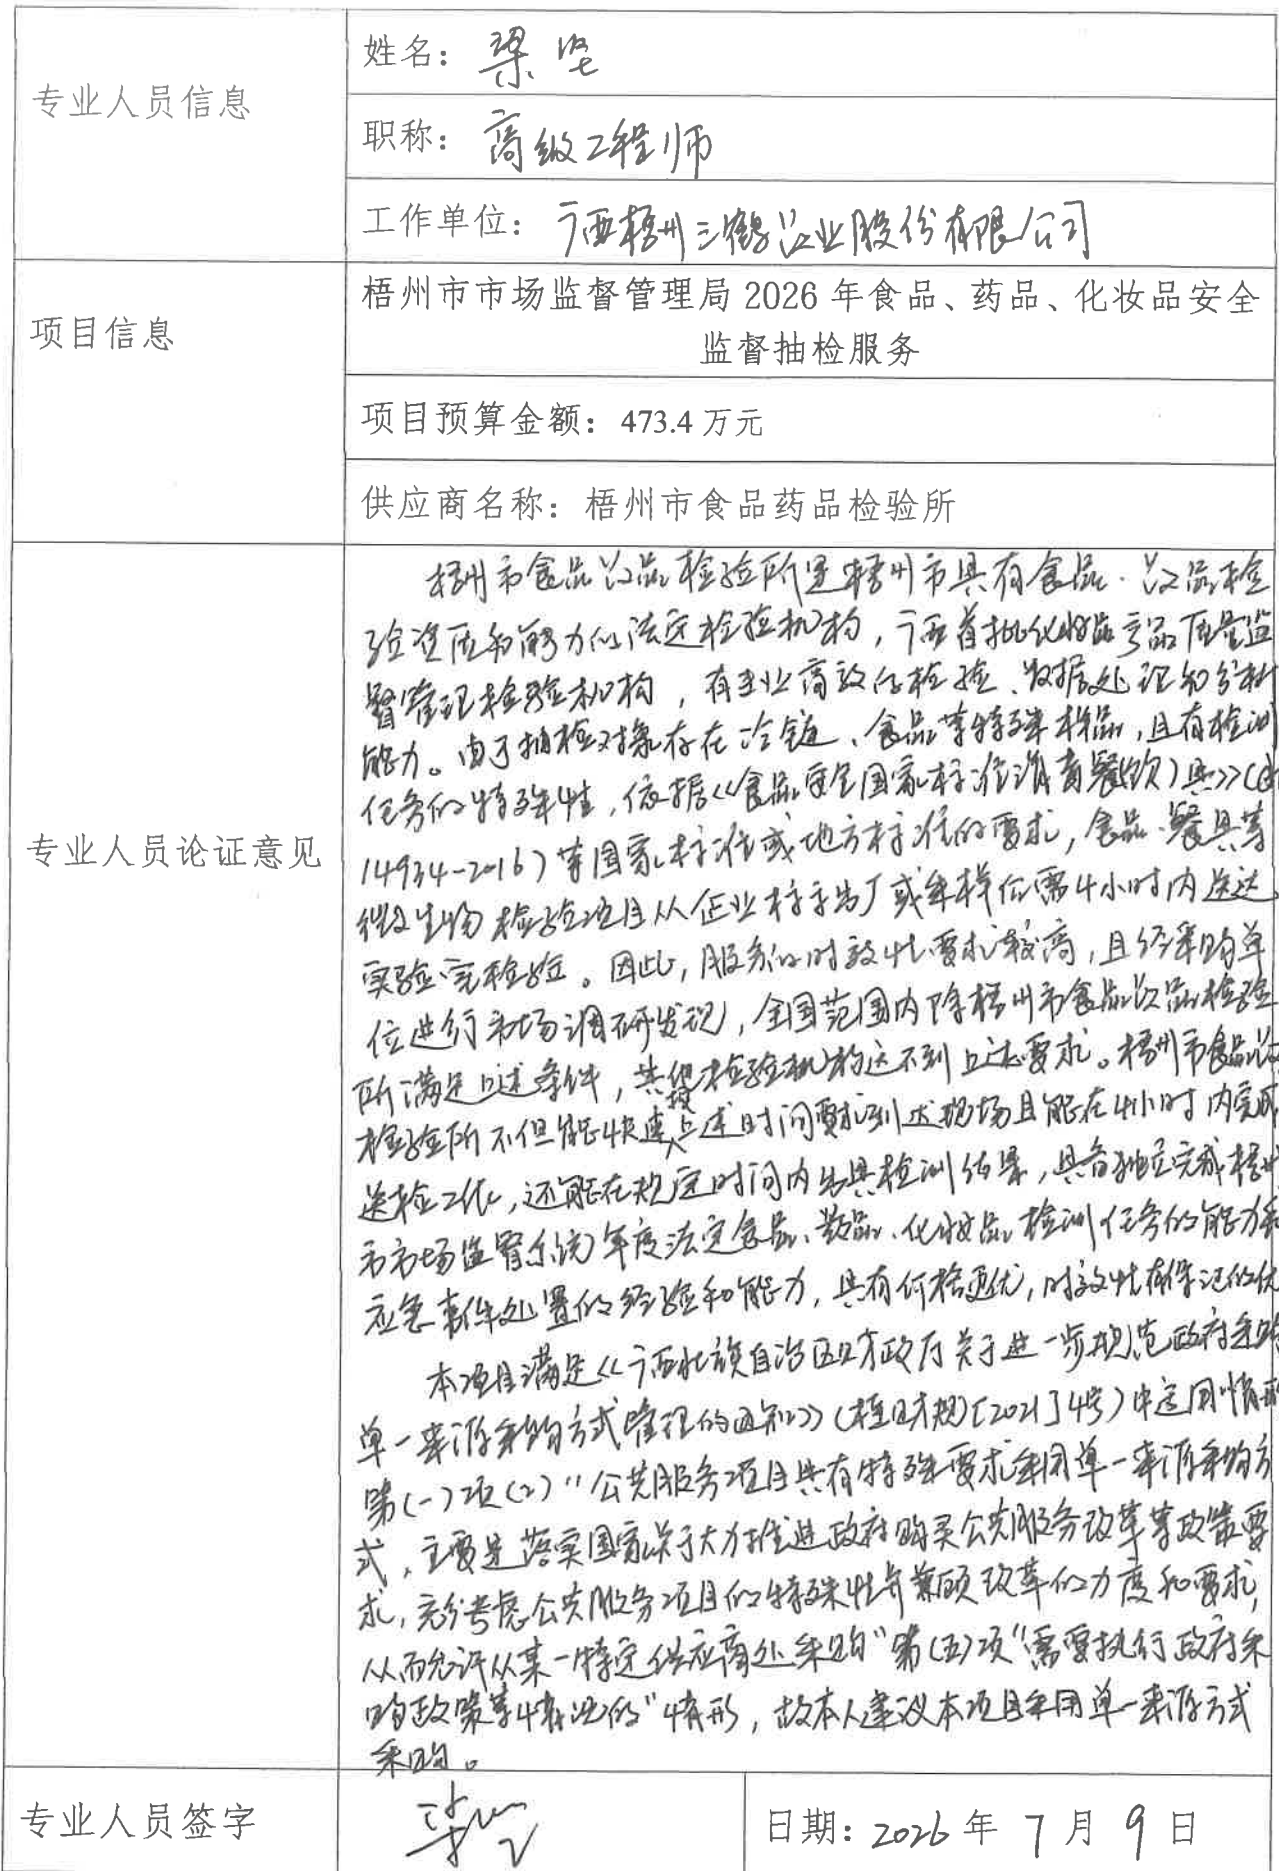 专业人员信息
姓名：梁坚
职称：高级工程师
工作单位：广西梧州三鹤药业股份有限公司
项目信息
梧州市市场监督管理局 2026 年食品、药品、化妆品安全
监督抽检服务
项目预算金额：473.4 万元
供应商名称：梧州市食品药品检验所
专业人员论证意见
梧州市食品药品检验所是梧州市具有食品、药品检
验资质和能力的法定检验机构，广西首批化妆品产品质量监
督管理检验机构，有专业高效的检验、数据处理和分析
能力。由于抽检对象存在冷链、食品等特殊样品，且有检测
任务的特殊性，依据《食品安全国家标准消毒餐(饮)具》(GB
14934-2016)等国家标准或地方标准的要求，食品、餐具等
微生物检验项目从企业标示出厂或采样后需4小时内送达
实验室检验。因此，服务的时效性要求较高，且经采购单
位进行市场调研发现，全国范围内除梧州市食品药品检验
所满足上述条件，其他检验机构达不到上述要求。梧州市食品药品
检验所不但能快速按上述时间要求到达现场且能在4小时内完成
送检工作，还能在规定时间内出具检测结果，具备独立完成梧州
市市场监督系统年度法定食品、药品、化妆品检测任务的能力和
应急事件处置的经验和能力，具有价格更优，时效性有保证的优
本项目满足《广西壮族自治区财政厅关于进一步规范政府采购
单一来源采购方式管理的通知》(桂财规〔2021〕4号)中适用情形
第(一)项(2)“公共服务项目具有特殊要求采用单一来源采购方
式，主要是落实国家关于大力推进政府购买公共服务改革等政策要
求，充分考虑公共服务项目的特殊性并兼顾改革的力度和要求，
从而允许从某一特定供应商处采购”第(五)项“需要执行政府采
购政策等情况的”情形，故本人建议本项目采用单一来源方式
采购。
专业人员签字
梁坚
日期：2026 年 7 月 9 日